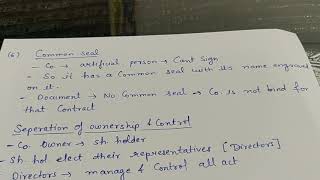 (6) Common seal
- Co. → artificial person → Cant Sign
- So it has a Common seal with its name engraved
on it.
- Document → No Common seal → Co. is not bind for
that Contract
Seperation of ownership & Control
- Co. Owner → sh. holder
- Sh. hol elect their representatives [Directors]
Directors → manage & Control all act